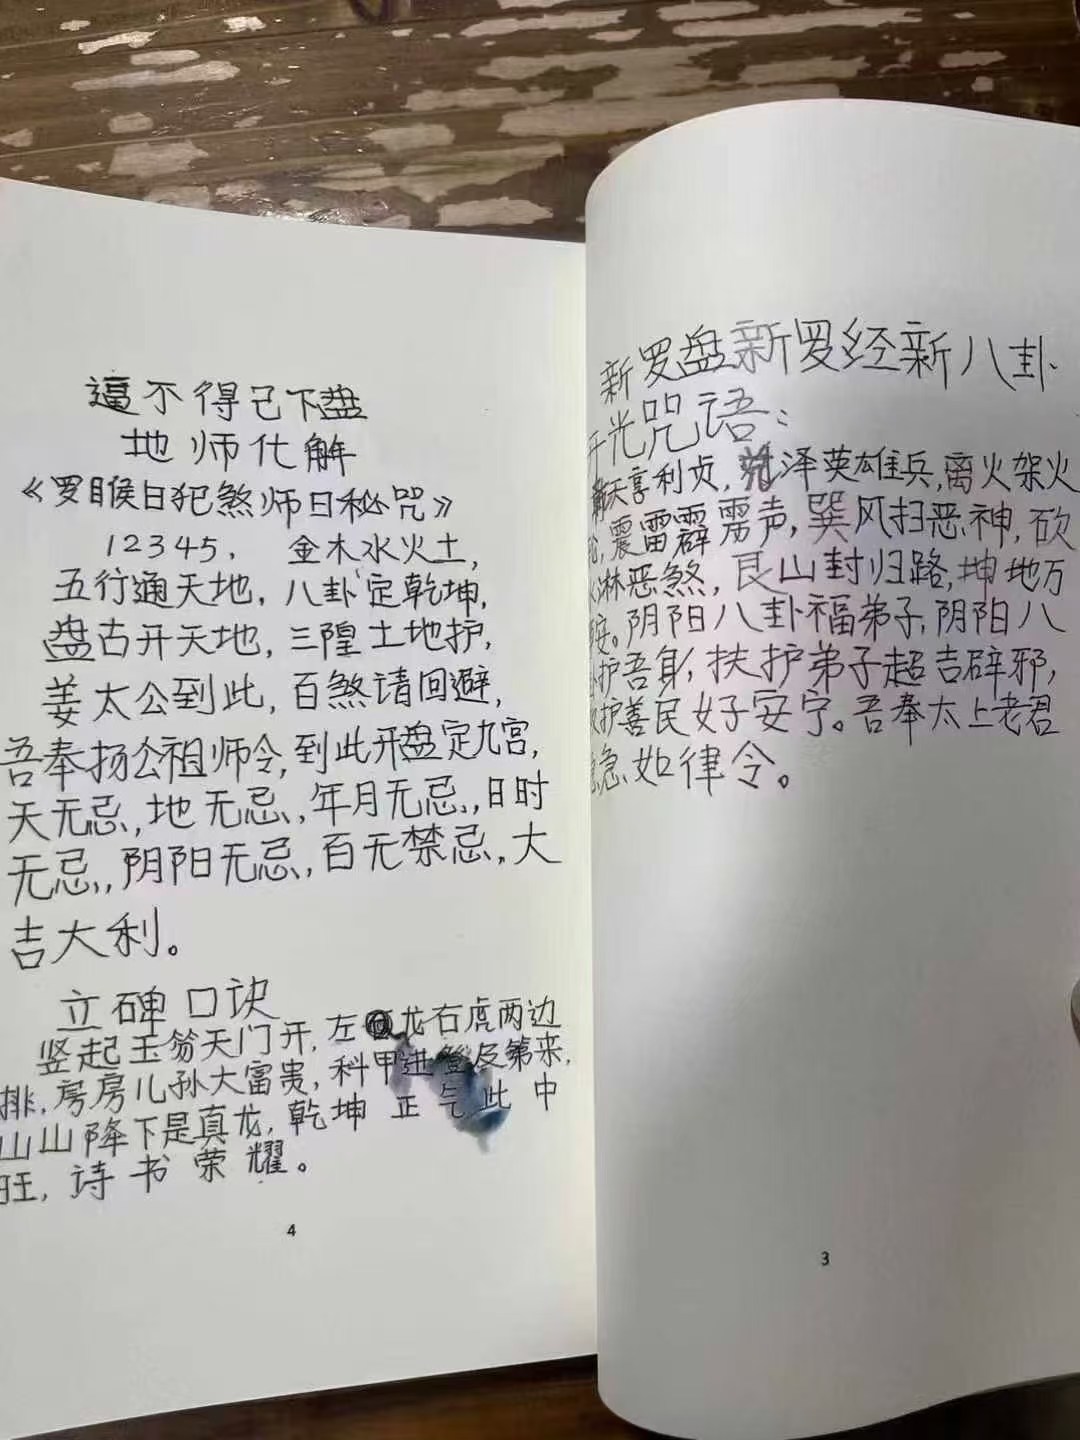 逼不得已下盘
地师化解
《罗睺日犯煞师日秘咒》
12345, 金木水火土,
五行通天地, 八卦定乾坤,
盘古开天地, 三隍土地护,
姜太公到此, 百煞请回避,
吾奉扬公祖师令, 到此开盘定九宫,
天无忌, 地无忌, 年月无忌, 日时
无忌, 阴阳无忌, 百无禁忌, 大
吉大利。
立碑口诀
竖起玉笏天门开, 左龙右虎两边
排, 房房儿孙大富贵, 科甲进登及第来,
山山降下是真龙, 乾坤正气此中
旺, 诗书荣耀。
4
新罗盘新罗经新八卦
开光咒语:
天亨利贞, 泽英雄兵, 离火架火
震雷霹雳声, 巽风扫恶神, 砍
淋恶煞, 艮山封归路, 坤地万
安。阴阳八卦福弟子, 阴阳八
护吾身, 扶护弟子超吉辟邪,
护善民好安宁。吾奉太上老君
急如律令。
3